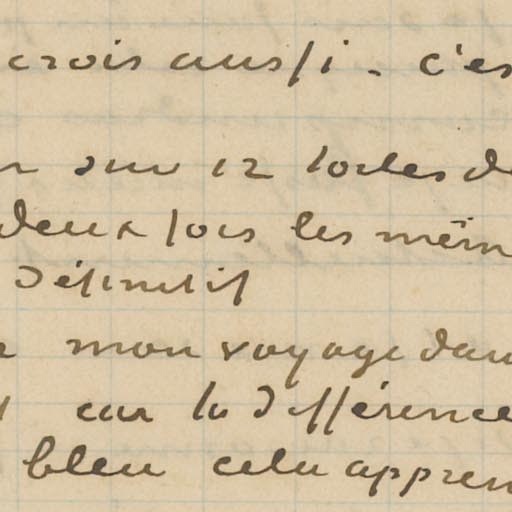 crois aussi. c'es
sur 12 toiles de
deux fois les mêm
définitif
mon voyage dan
car la différence
bleu cela appren